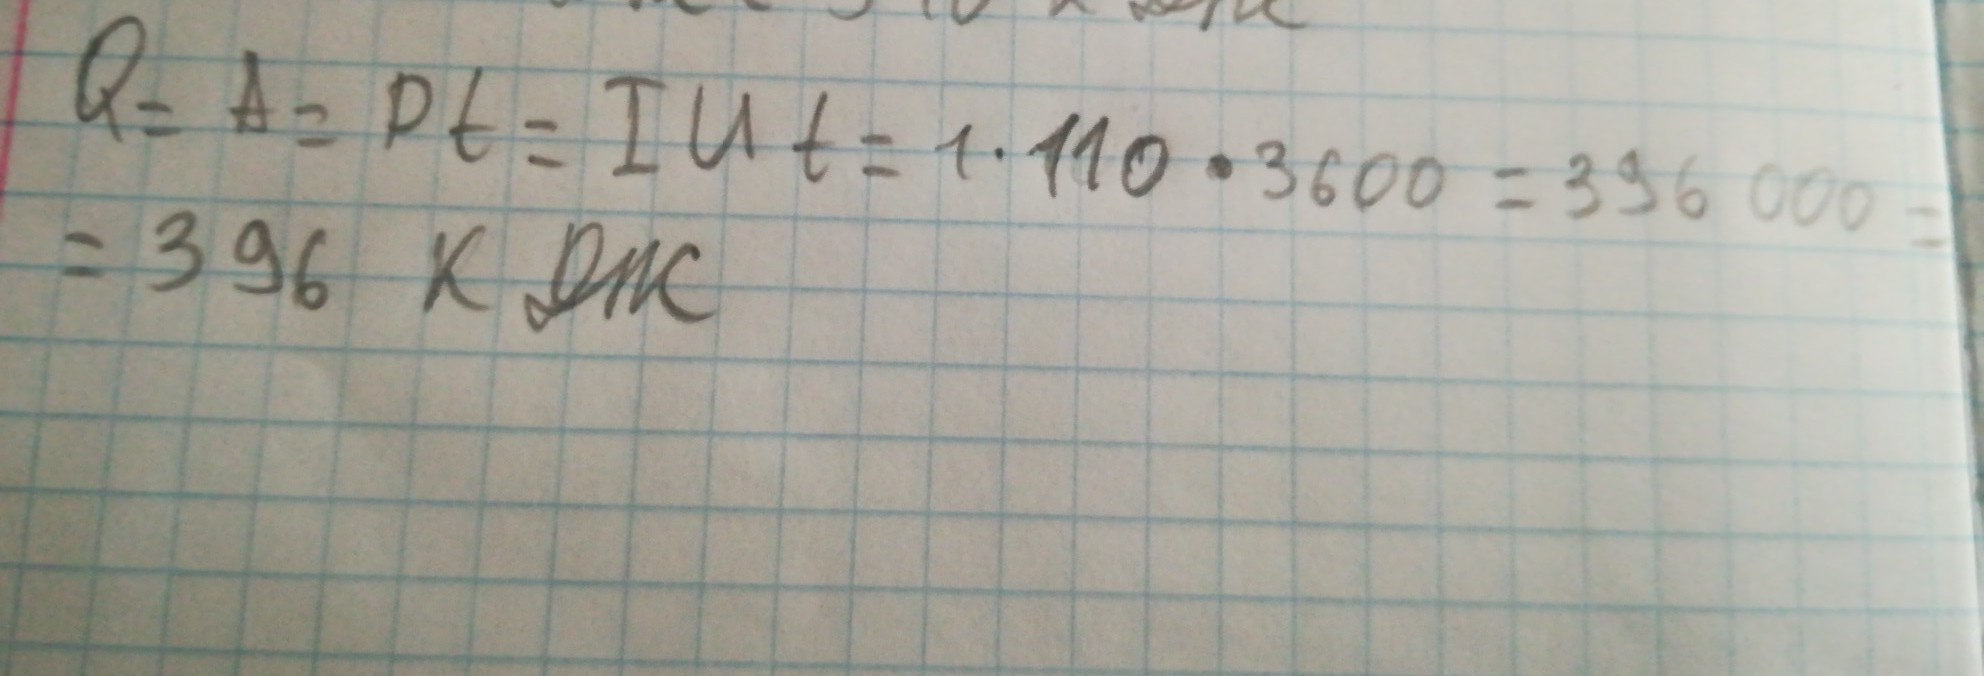 Q = A = Pt = IUt = 1 · 110 · 3600 = 396 000 =
= 396 к Дж